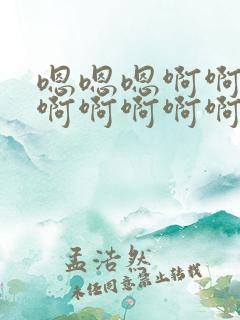 嗯嗯嗯啊啊
啊啊啊啊啊
孟浩然
未经同意禁止转载